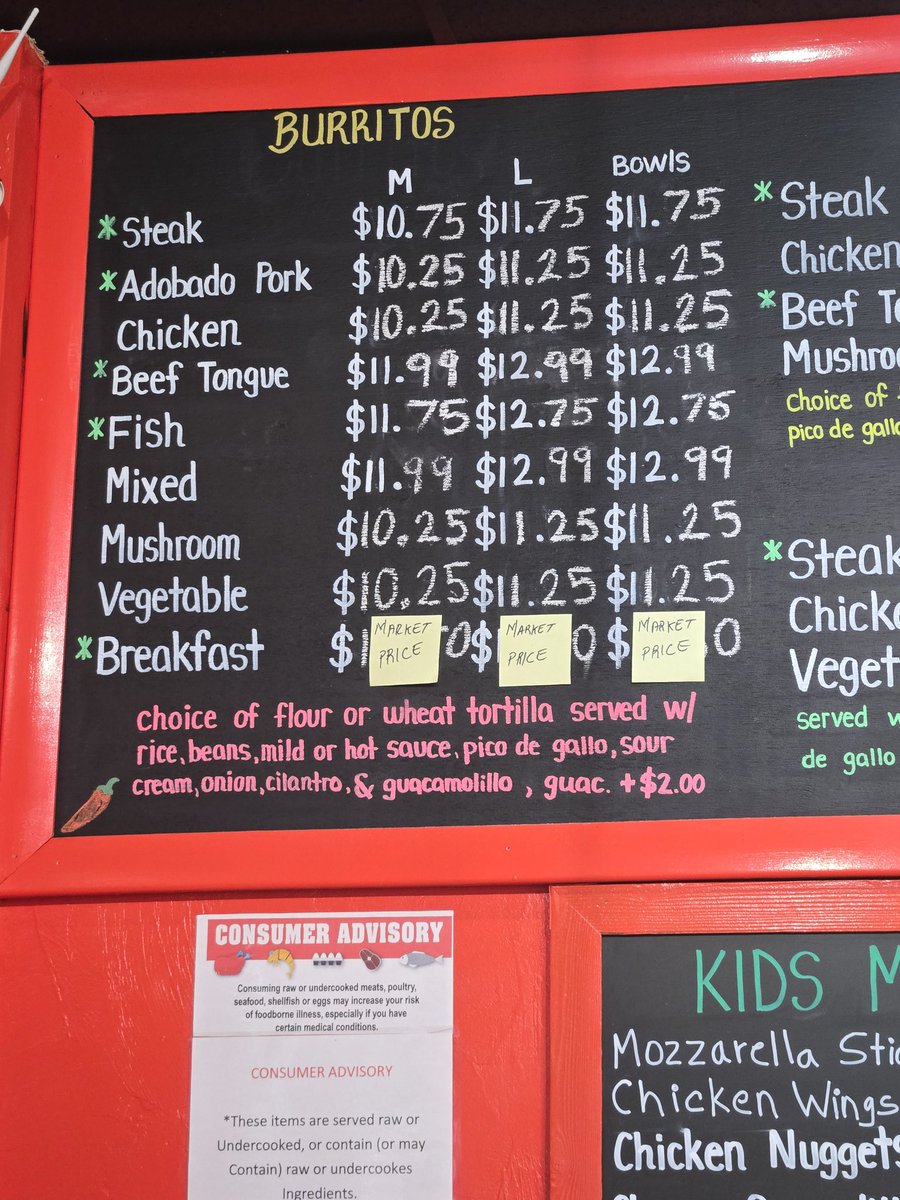 BURRITOS
M L BOWLS
*Steak $10.75 $11.75 $11.75
*Adobado Pork $10.25 $11.25 $11.25
Chicken $10.25 $11.25 $11.25
*Beef Tongue $11.99 $12.99 $12.99
*Fish $11.75 $12.75 $12.75
Mixed $11.99 $12.99 $12.99
Mushroom $10.25 $11.25 $11.25
Vegetable $10.25 $11.25 $11.25
*Breakfast $ MARKET PRICE 0 $ MARKET PRICE 0 $ MARKET PRICE 0
choice of flour or wheat tortilla served w/
rice, beans, mild or hot sauce, pico de gallo, sour
cream, onion, cilantro, & guacamolillo, guac. +$2.00
*Steak
Chicken
*Beef To
Mushroo
choice of
pico de gallo
*Steak
Chicke
Veget
served w
de gallo
CONSUMER ADVISORY
Consuming raw or undercooked meats, poultry,
seafood, shellfish or eggs may increase your risk
of foodborne illness, especially if you have
certain medical conditions.
CONSUMER ADVISORY
*These items are served raw or
Undercooked, or contain (or may
Contain) raw or undercookes
Ingredients.
KIDS M
Mozzarella Stic
Chicken Wings
Chicken Nuggets